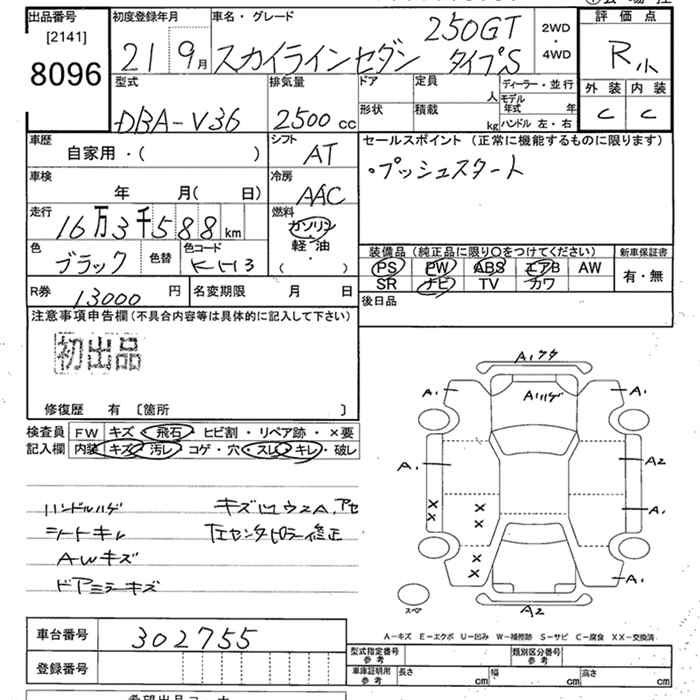 出品番号
[2141]
8096
初度登録年月
21 9月
車名・グレード
スカイラインセダン 250GT タイプS
2WD
・
4WD
評価点
R小
外装 内装
C C
型式
DBA-V36
排気量
2500 cc
ドア
定員
人
形状
積載
kg
ディーラー・並行
モデル年式 年
ハンドル 左・右
車歴
自家用・( )
シフト
AT
車検
年 月( 日)
冷房
AAC
走行
16万3千588 km
燃料
ガソリン
軽・油
( )
色
ブラック
色替
色コード
KH3
R券
13000 円
名変期限 月 日
セールスポイント (正常に機能するものに限ります)
・プッシュスタート
装備品 (純正品に限り○をつけてください)
PS PW ABS エアB AW
SR ナビ TV カワ
新車保証書
有・無
後日品
注意事項申告欄(不具合内容等は具体的に記入して下さい)
初出品
修復歴 有 〔箇所 〕
検査員
記入欄
FW キズ・飛石・ヒビ割・リペア跡・×要
内装 キズ・汚レ・コゲ・穴・スレ・キレ・破レ
ハンドルハゲ
シートキレ
AWキズ
ドアミラーキズ
A1ハゲ
A1 A1
A1 A2
A1
A1
A2
スペア
A-キズ E-エクボ U-凹み W-補修跡 S-サビ C-腐食 XX-交換済
車台番号
302755
登録番号
型式指定番号
参考
類別区分番号
参考
車庫証明用
参考
長さ cm 幅 cm 高さ cm